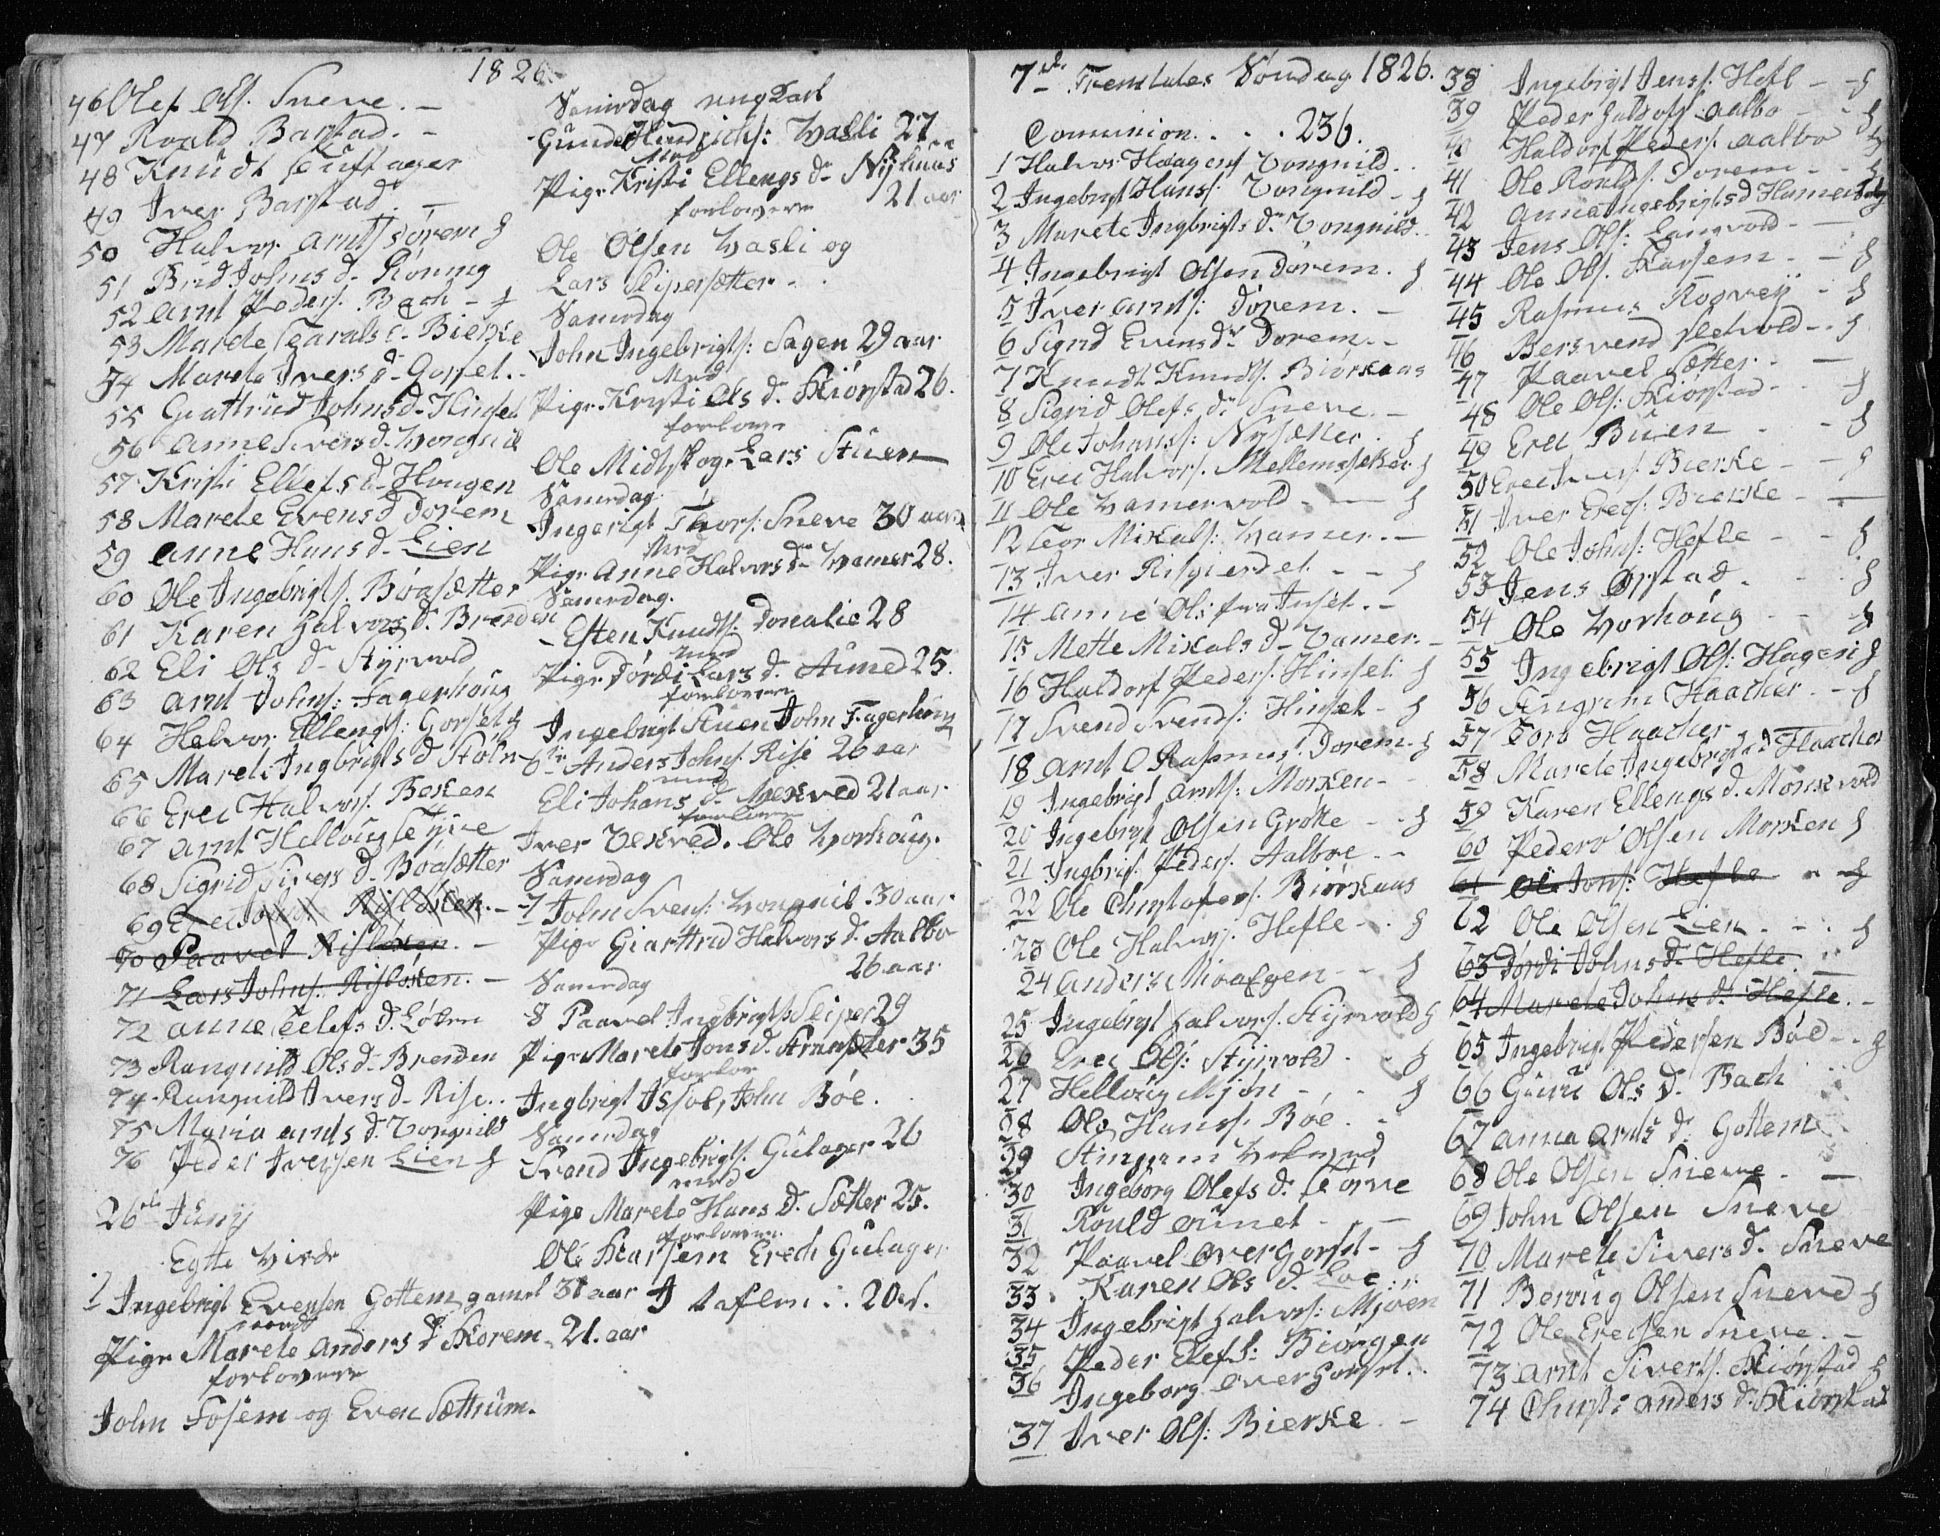 1826.
46 Olef Ols. Sneve. -
47 Roald Barstad. -
48 Knudt
49 Iver Barstad. -
50 Halvor Arnts Dørem
51 Brid Johns d. Rønning
52 Arnt Peders. Bach -
53 Marete d. Bierke
54 Marete Ivers d. Gorset. -
55 Giattrud Johns d. Hinset
56 Anne Sivers d. Vongnild
57 Kristi Ellefs d. Haugen
58 Marete Evens d Dorem
59 Anne Hans d. Lien
60 Ole Ingebrigts. Boasætter
61 Karen Halvors d. Brenden
62 Eli Ols d. Styrvold
63 Arnt Johns: Fagerhoug
64 Halvor Ellengs: Gorset
65 Marete Ingbrigts d Støln
66 Erec Halvors. Beken
67 Arnt Helloug
68 Sigrid Sivers d. Boasætter
69 Erec Risløken. -
70 Paavel Risløken. -
71 Lars Johns. Risløken. -
72 Anne d. Løken
73 Rangnild Ols d. Brenden
74 Rangnild Ivers d. Rise. .
75 Maria Arnts d. Vongnild
76 Peder Iversen Lien
26de Juny
Egte Viede
1 Ingebrigt Evensen Gottem gamel 31 aar
med
Pige Marete Anders d. Skorem 21. aar
forlovere
John Fosem og Even Sættrum.
Samedag ung Karl
Gunder Hendrichs: Vasli 27
Med
Pige Kristi Ellengs d. Nyhuus
forlovere 21 aar
Ole Olsen Vasli og
Lars Slipersætter. .
Samedag
John Ingebrigts: Sagen 29 aar
Med
Pige Kristi Ols d. Kiørstad 26.
forlover
Ole Midtskog. Lars Stuen
Samedag
Ingerigt Thors: Sneve 30 aar
Med
Pige Anne Halvors d. Vamer 28.
Samedag.
- Esten Knudts. Donalie 28
med
Pige Dordi Lars d. Auned 25.
forlovere
Ingebrigt Stuen John Fagerhoug
6 Anders Johns. Rise 26 aar
med
Eli Johans d. Vekved 21 aar
forlovere
Iver Vekved. Ole Vorhoug.
Samedag
7 John Svens: Vongnil 30 aar
Pige Giarttrud Halvors d. Aalbo
26 aar
Samedag
8 Paavel Ingbrigts Sliper 29
Pige Marete Jons d. 35
forlov
Ingbrigt John Böe.
Samedag
Ingebrigts. Gulager 26
med
Pige Marete Hans d. Sætter 25.
forlovere
Ole Karsem Erech Gulager
20
7de Tremtates Søndag 1826.
Communion. . . . 236.
1 Halvor Haagens Vongnild. .
2 Ingebrigt Hans: Vongnild -
3 Marete Ingbrigts d. Vongnild.
4 Ingebrigt Olsen Dorem.
5 Iver Arnts: Dorem. -
6 Sigrid Evens d. Dorem. -
7 Knudt Knudts. Biørkaas
8 Sigrid Olefs d. Sneve. -
9 Ole Johans: Nysæter.
10 Erec Halvors. Mellemsæter
11 Ole Vamervold. - -
12 Mikals: Vamer. -
13 Iver Risgierdet - -
14 Anne Ols fra Inset. -
15 Mette Mikals d. Vamer. -
16 Haldorf Peders. Hinset
17 Svend Svends: Hinset -
18 Arnt O Rasmus. Dorem -
19 Ingebrigt Arnts: Morken -
20 Ingebrigt Olsen Grøtte -
21 Ingbrigt Peders. Aalboe. -
22 Ole Christofers. Biørkaas
23 Ole Halvors. Hefle -
24 Anders Moalgen - -
25 Ingebrigt Halvors. Styrvold
26 Erec Ols: Styrvold.
27 Helloug Mjøn - -
28 Ole Hans. Böe. -
29 Stingrim Vekved
30 Ingeborg Olefs d.
31 Rould Aunet - -
32 Paavel Overgorset -
33 Karen Ols d. Loe
34 Ingebrigt Halvors: Mjøen
35 Peder Elefs: Biørgen
36 Ingeborg Overgorset. .
37 Iver Ols: Bierke. -
38 Ingebrigt Jens: Hefl -
39 Peder Haldors Aalbo
40 Haldorf Peders. Aalbo
41 Ole Roulds. Dorem - -
42 Anne Ingebrigts d
43 Jens Ols: Langvold - -
44 Ole Ols. Karsem. -
45 Rasmus
46 Bersvend -
47 Paavel Sætter. -
48 Ole Ols: Kiørstad -
49 Erec Buen -
50 Erec Ivers. Bierke - -
51 Iver Erecs: Bierke -
52 Ole Johns: Hefle - -
53 Jens Ørstad. -
54 Ole Vorhoug - -
55 Ingebrigt Ols: Hagen
56 Stingrim Haacher -
57 Tore Haacker
58 Marete Ingebrigts d Haacher
59 Karen Ellengs d. Morkvold
60 Peder Olsen Morken
61 Ole Jons: Hefle - -
62 Ole Olsen Lien - -
63 Dordi Johns d. Hefle. -
64 Marete Johns d. Hefle. -
65 Ingebrigt Pedersen Böe -
66 Guru Ols d. Bach
67 Anna Arnts d. Gottem
68 Ole Olsen Sneve. -
69 John Olsen Sneve
70 Marete Sivers d. Sneve
71 Beroug Olsen Sneve
72 Ole Erecsen Sneve. -
73 Arnt Siverts. Kiørstad
74 Christi Anders d. Kiørstad